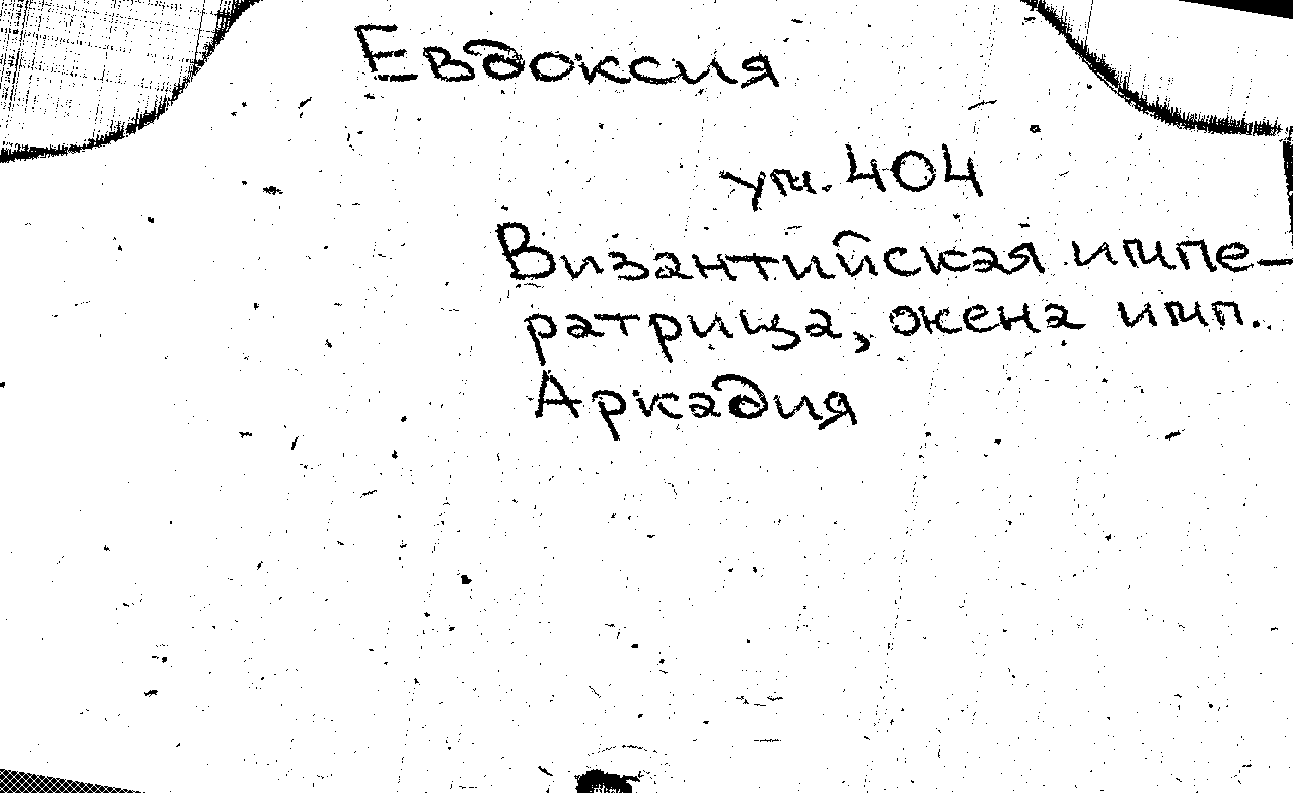 Евдоксия
ум. 404
Византийская импе-
ратрица, жена имп.
Аркадия